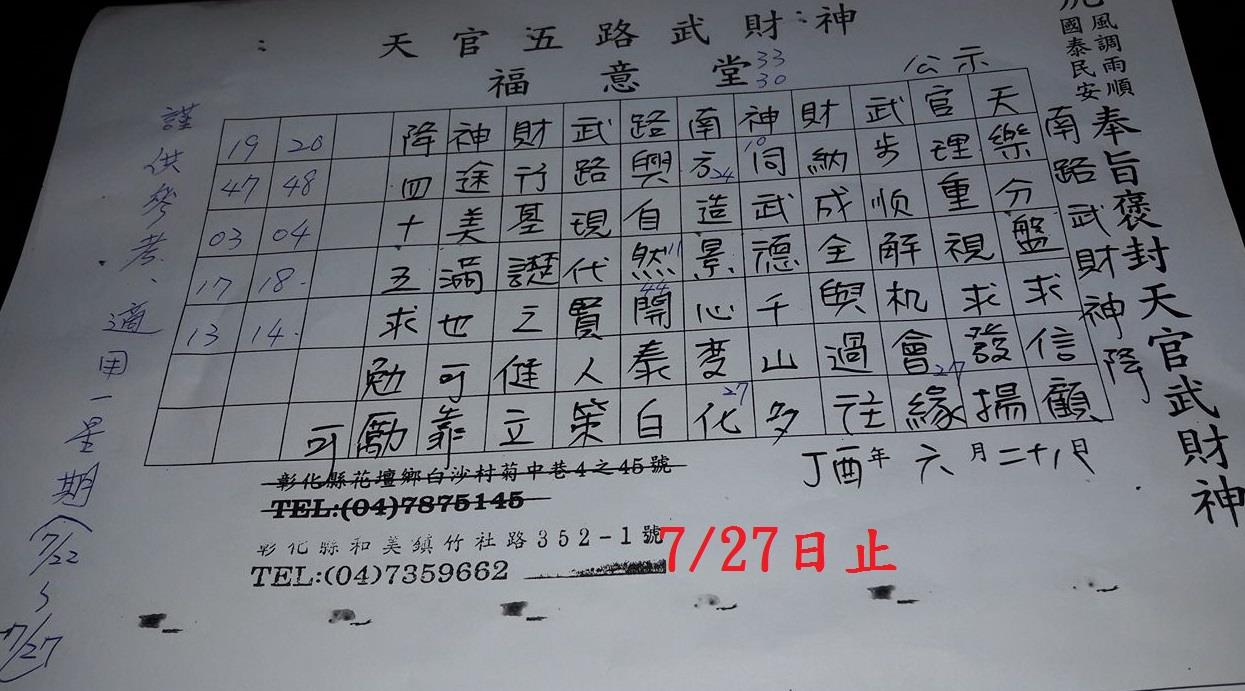 天官五路武財神
福意堂
33
30
公示
風調雨順
國泰民安
奉旨褒封天官武財神
南路武財神降
天樂分盤求信顧
官理重視求發揚
武步順解机會緣
27
財納成全與過往
神同武德千山多
10
南方造景心變化
24
27
路興自然開泰白
11
44
武路現代賢人策
財行基礎之健立
神途美滿也可靠
降四十五求勉勵
可
20 48 04 18. 14.
19 47 03 17 13
丁酉年六月二十八日
謹供參考、適用一星期(7/22~7/27)
彰化縣花壇鄉白沙村菊中巷4之45號
TEL:(04)7875145
彰化縣和美鎮竹社路352-1號
TEL:(04)7359662
7/27日止